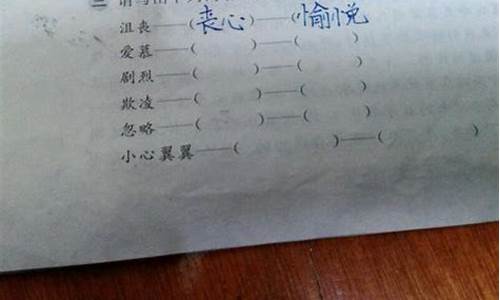 沮丧——(丧心)——(愉悦
爱慕——( )——( )
剧烈——( )——( )
欺凌——( )——( )
忽略——( )——( )
小心翼翼——( )——( )